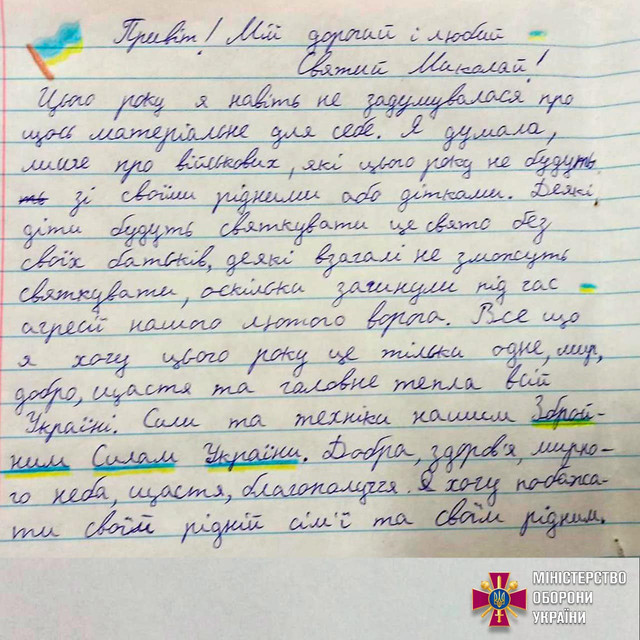 Привіт! Мій дорогий і любий
Святий Миколай!
Цього року я навіть не задумувалася про
щось матеріальне для себе. Я думала,
лише про військових, які цього року не будуть
ть зі своїми рідними або дітками. Деякі
діти будуть святкувати це свято без
своїх батьків, деякі взагалі не зможуть
святкувати, оскільки загинули під час
агресії нашого лютого ворога. Все що
я хочу цього року це тільки одне, мир,
добро, щастя та головне тепла всій
Україні. Сили та техніки нашим Зброй-
ним Силам України. Добра, здоров'я, мирно-
го неба, щастя, благополуччя. Я хочу побажа-
ти своїй рідній сім'ї та своїм рідним.
МІНІСТЕРСТВО
ОБОРОНИ
УКРАЇНИ